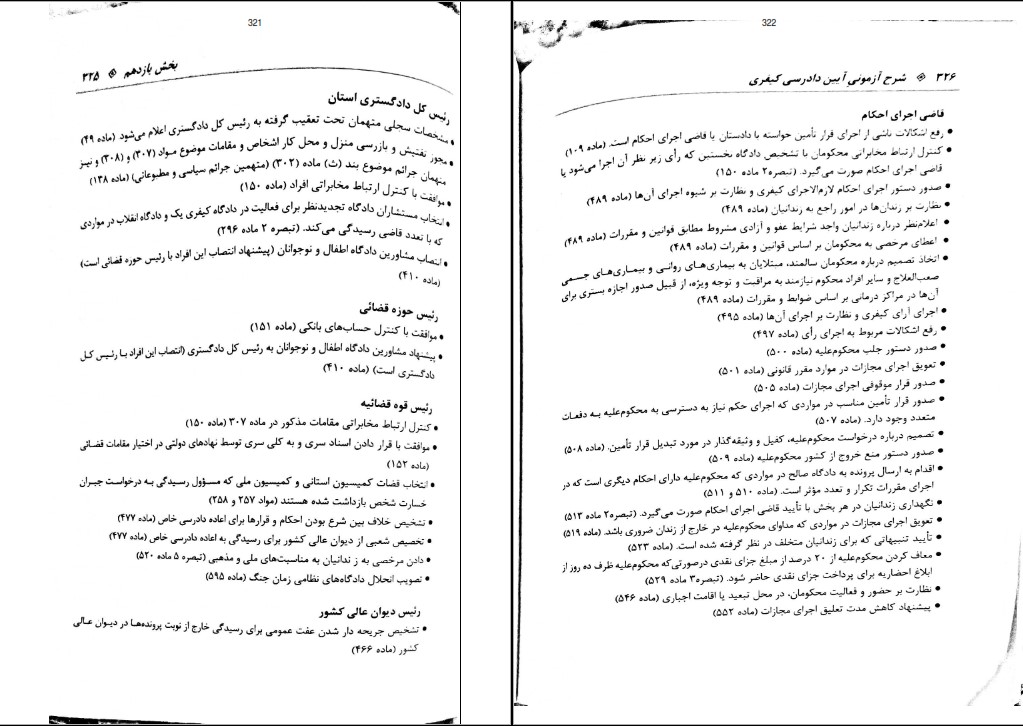 321
بخش یازدهم ◈ ۳۲۵
رئیس کل دادگستری استان
• مشخصات سجلی متهمان تحت تعقیب گرفته به رئیس کل دادگستری اعلام می‌شود (ماده ۴۹)
• مجوز تفتیش و بازرسی منزل و محل کار اشخاص و مقامات موضوع مـواد (۳۰۷) و (۳۰۸) و نیـز
متهمان جرائم موضوع بند (ث) ماده (۳۰۲) (متهمین جرائم سیاسی و مطبوعاتی) (ماده ۱۳۸)
• موافقت با کنترل ارتباط مخابراتی افراد (ماده ۱۵۰)
• انتخاب مستشاران دادگاه تجدیدنظر برای فعالیت در دادگاه کیفری یک و دادگاه انقلاب در مواردی
که با تعدد قاضی رسیدگی می‌کند. (تبصره ۲ ماده ۲۹۶)
• انتصاب مشاورین دادگاه اطفال و نوجوانان (پیشنهاد انتصاب این افراد با رئیس حوزه قضائی است)
(ماده ۴۱۰)
رئیس حوزه قضائی
• موافقت با کنترل حساب‌های بانکی (ماده ۱۵۱)
• پیشنهاد مشاورین دادگاه اطفال و نوجوانان به رئیس کل دادگستری (انتصاب این افراد بـا رئـیس کـل
دادگستری است) (ماده ۴۱۰)
رئیس قوه قضائیه
• کنترل ارتباط مخابراتی مقامات مذکور در ماده ۳۰۷ (ماده ۱۵۰)
• موافقت با قرار دادن اسناد سری و به کلی سری توسط نهادهای دولتی در اختیار مقامات قضـائی
(ماده ۱۵۲)
• انتخاب قضات کمیسیون استانی و کمیسیون ملی که مسؤول رسیدگی بـه درخواسـت جبـران
خسارت شخص بازداشت شده هستند (مواد ۲۵۷ و ۲۵۸)
• تشخیص خلاف بین شرع بودن احکام و قرارها برای اعاده دادرسی خاص (ماده ۴۷۷)
• تخصیص شعبی از دیوان عالی کشور برای رسیدگی به اعاده دادرسی خاص (ماده ۴۷۷)
• دادن مرخصی به ز ندانیان به مناسبت‌های ملی و مذهبی (تبصره ۵ ماده ۵۲۰)
• تصویب انحلال دادگاه‌های نظامی زمان جنگ (ماده ۵۹۵)
رئیس دیوان عالی کشور
• تشخیص جریحه دار شدن عفت عمومی برای رسیدگی خارج از نوبت پرونده‌هـا در دیـوان عـالی
کشور (ماده ۴۶۶)
322
۳۲۶ ◈ شرح آزمونی آیین دادرسی کیفری
قاضی اجرای احکام
• رفع اشکالات ناشی از اجرای قرار تأمین خواسته با دادستان یا قاضی اجرای احکام است. (ماده ۱۰۹)
• کنترل ارتباط مخابراتی محکومان با تشخیص دادگاه نخستین که رأی زیر نظر آن اجرا می‌شود یا
قاضی اجرای احکام صورت می‌گیرد. (تبصره۲ ماده ۱۵۰)
• صدور دستور اجرای احکام لازم‌الاجرای کیفری و نظارت بر شیوه اجرای آن‌ها (ماده ۴۸۹)
• نظارت بر زندان‌ها در امور راجع به زندانیان (ماده ۴۸۹)
• اعلام‌نظر درباره زندانیان واجد شرایط عفو و آزادی مشروط مطابق قوانین و مقررات (ماده ۴۸۹)
• اعطای مرخصی به محکومان بر اساس قوانین و مقررات (ماده ۴۸۹)
• اتخاذ تصمیم درباره محکومان سالمند، مبتلایان به بیماری‌هـای روانـی و بیمـاری‌هـای جسـمی
صعب‌العلاج و سایر افراد محکوم نیازمند به مراقبت و توجه ویژه، از قبیل صدور اجازه بستری برای
آن‌ها در مراکز درمانی بر اساس ضوابط و مقررات (ماده ۴۸۹)
• اجرای آرای کیفری و نظارت بر اجرای آن‌ها (ماده ۴۹۵)
• رفع اشکالات مربوط به اجرای رأی (ماده ۴۹۷)
• صدور دستور جلب محکوم‌علیه (ماده ۵۰۰)
• تعویق اجرای مجازات در موارد مقرر قانونی (ماده ۵۰۱)
• صدور قرار موقوفی اجرای مجازات (ماده ۵۰۵)
• صدور قرار تأمین مناسب در مواردی که اجرای حکم نیاز به دسترسی به محکوم‌علیه بـه دفعـات
متعدد وجود دارد. (ماده ۵۰۷)
• تصمیم درباره درخواست محکوم‌علیه، کفیل و وثیقه‌گذار در مورد تبدیل قرار تأمین. (ماده ۵۰۸)
• صدور دستور منع خروج از کشور محکوم‌علیه (ماده ۵۰۹)
• اقدام به ارسال پرونده به دادگاه صالح در مواردی که محکوم‌علیه دارای احکام دیگری است که در
اجرای مقررات تکرار و تعدد مؤثر است. (ماده ۵۱۰ و ۵۱۱)
• نگهداری زندانیان در هر بخش با تأیید قاضی اجرای احکام صورت می‌گیرد. (تبصره۲ ماده ۵۱۳)
• تعویق اجرای مجازات در مواردی که مداوای محکوم‌علیه در خارج از زندان ضروری باشد. (ماده ۵۱۹)
• تأیید تنبیهاتی که برای زندانیان متخلف در نظر گرفته شده است. (ماده ۵۲۳)
• معاف کردن محکوم‌علیه از ۲۰ درصد از مبلغ جزای نقدی درصورتی‌که محکوم‌علیه ظرف ده روز از
ابلاغ احضاریه برای پرداخت جزای نقدی حاضر شود. (تبصره۳ ماده ۵۲۹)
• نظارت بر حضور و فعالیت محکومان، در محل تبعید یا اقامت اجباری (ماده ۵۴۶)
• پیشنهاد کاهش مدت تعلیق اجرای مجازات (ماده ۵۵۲)